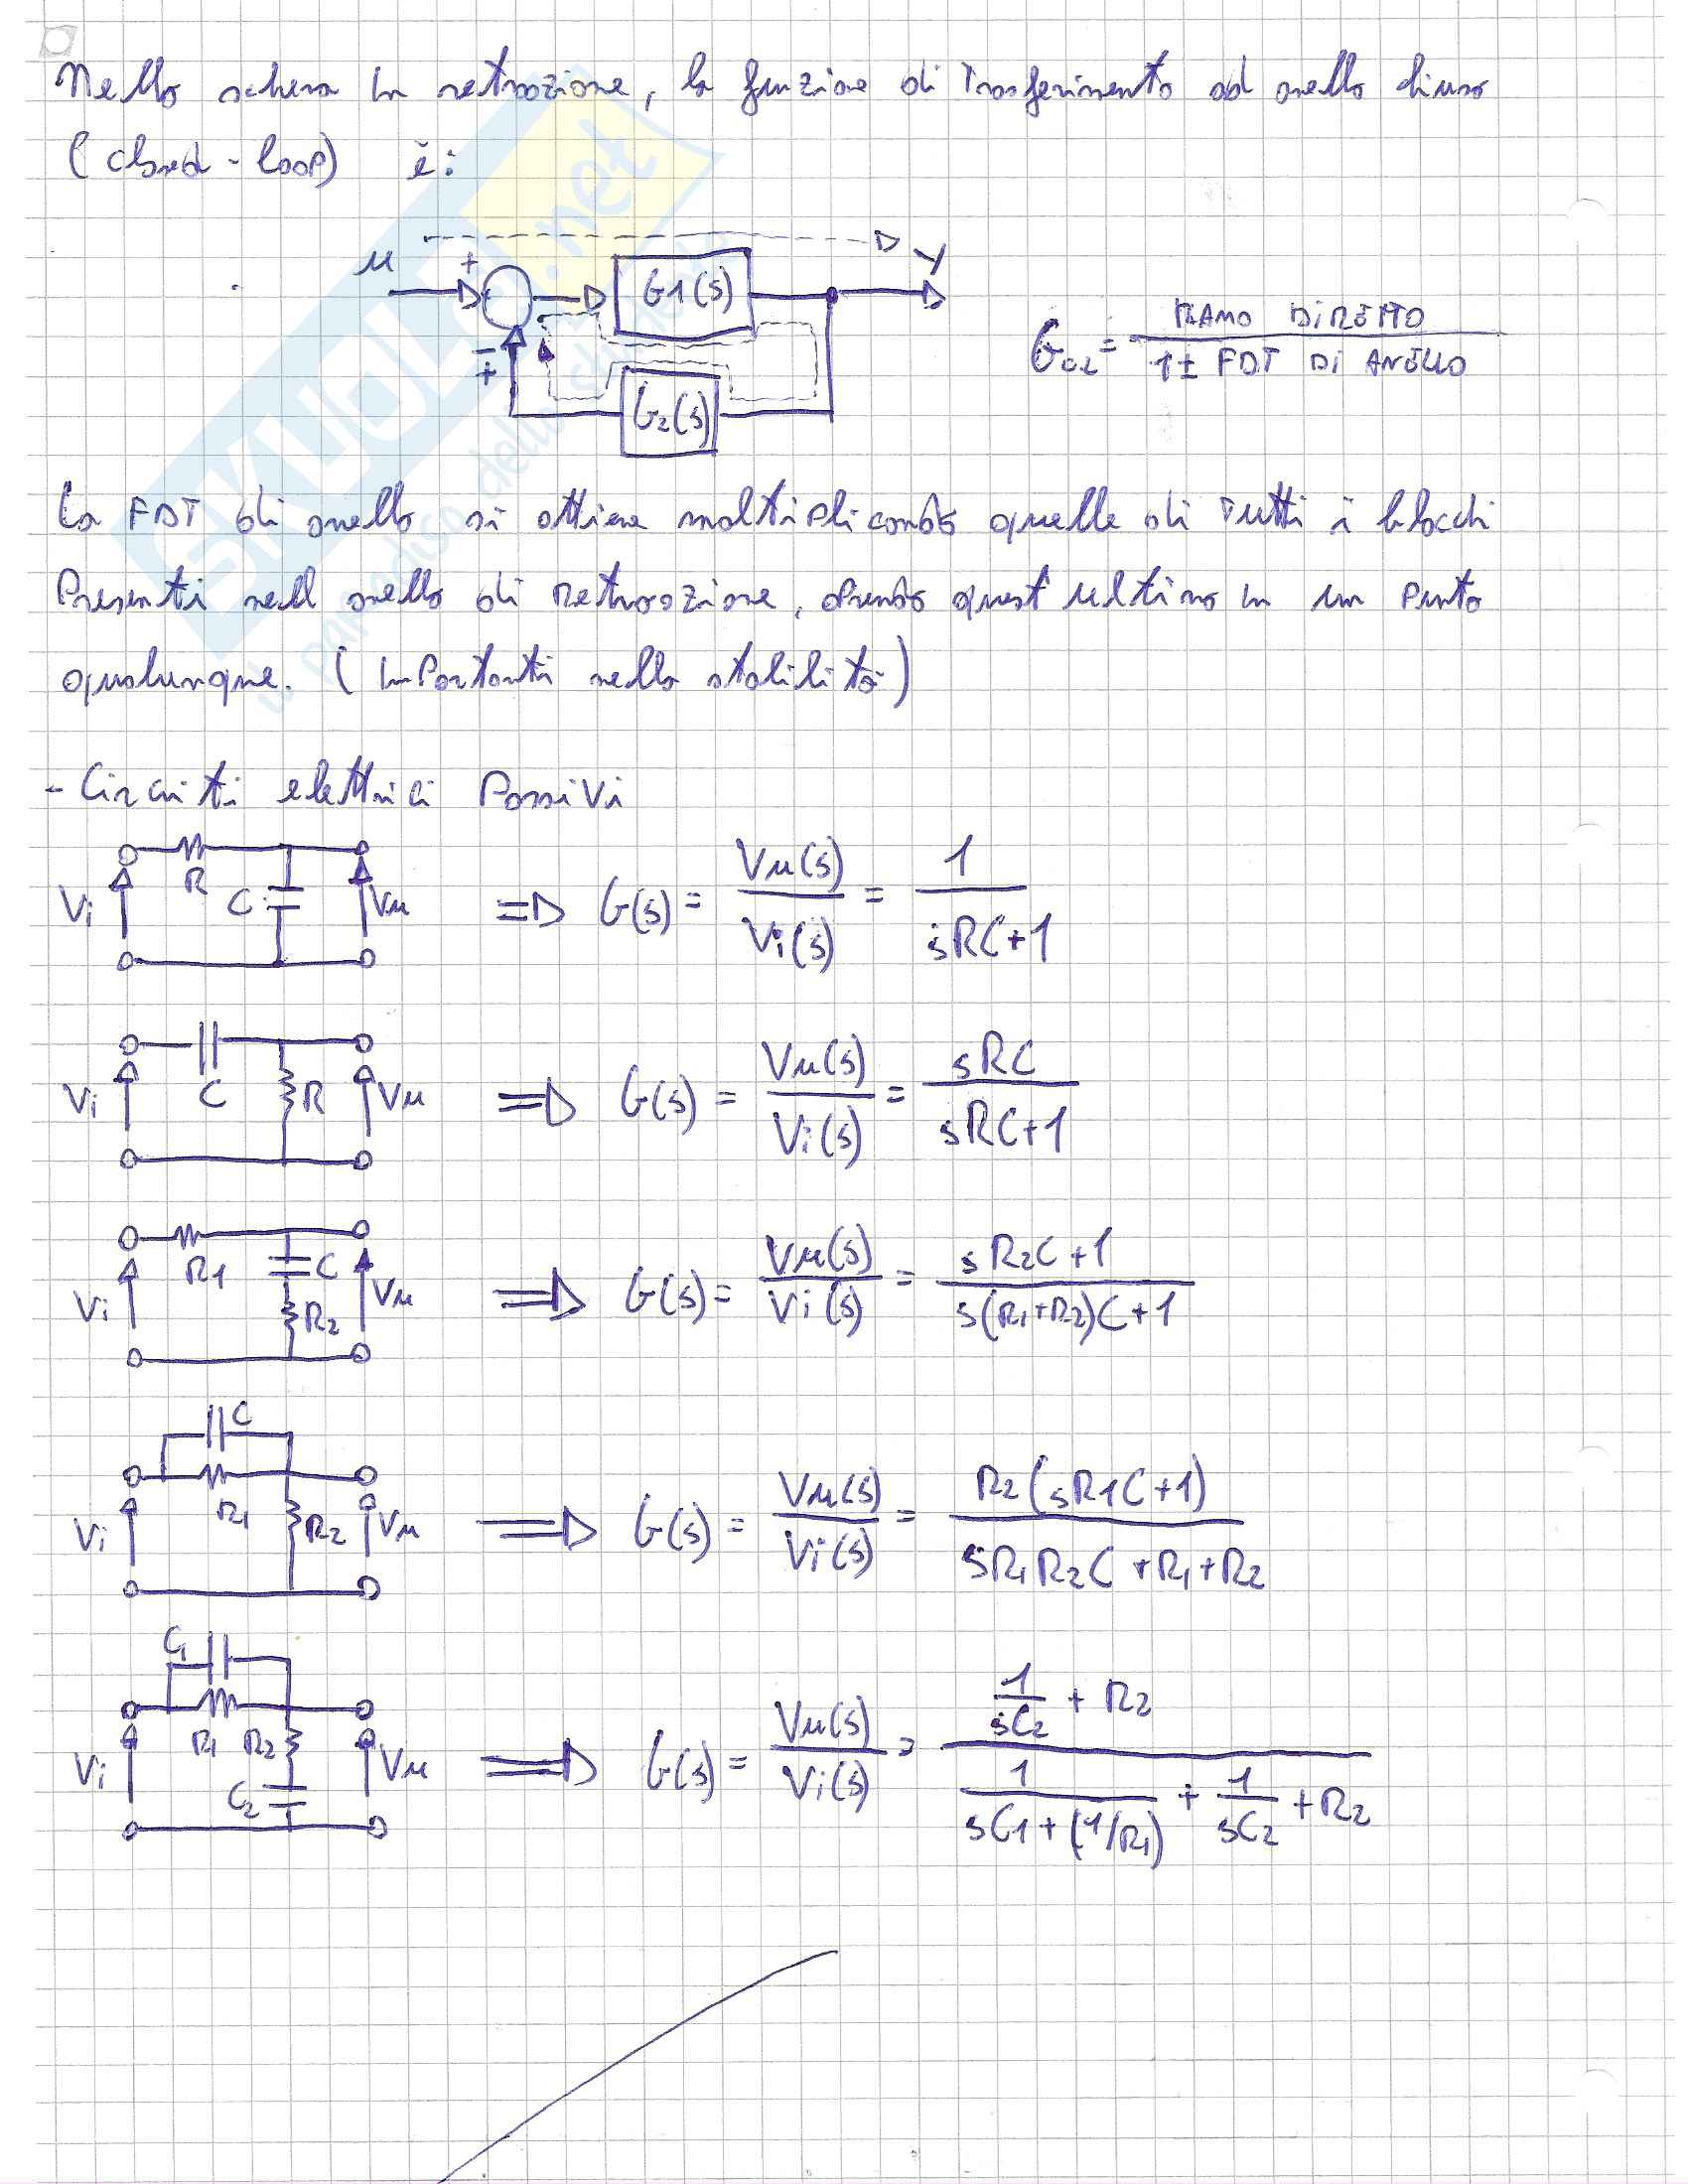 Nello schema in retroazione, la funzione di Trasferimento ad anello chiuso
(closed-loop) è:
u + G1(s) Y
∓ G2(s)
G_CL = RAMO DIRETTO / 1 ± FDT DI ANELLO
La FDT di anello si ottiene moltiplicando quelle di Tutti i blocchi
Presenti nell anello di Retroazione, aprendo quest'ultimo in un punto
qualunque. (Importanti nella stabilità)
- Circuiti elettrici Passivi
Vi R C Vu => G(s) = Vu(s)/Vi(s) = 1/(sRC+1)
Vi C R Vu => G(s) = Vu(s)/Vi(s) = sRC/(sRC+1)
Vi R1 C R2 Vu => G(s) = Vu(s)/Vi(s) = (sR2C+1)/(s(R1+R2)C+1)
Vi C R1 R2 Vu => G(s) = Vu(s)/Vi(s) = R2(sR1C+1)/(sR1R2C+R1+R2)
Vi C1 R1 R2 C2 Vu => G(s) = Vu(s)/Vi(s) = (1/sC2 + R2)/(1/(sC1+(1/R1)) + 1/sC2 + R2)
SKUOLA.net
il paradiso dello studente